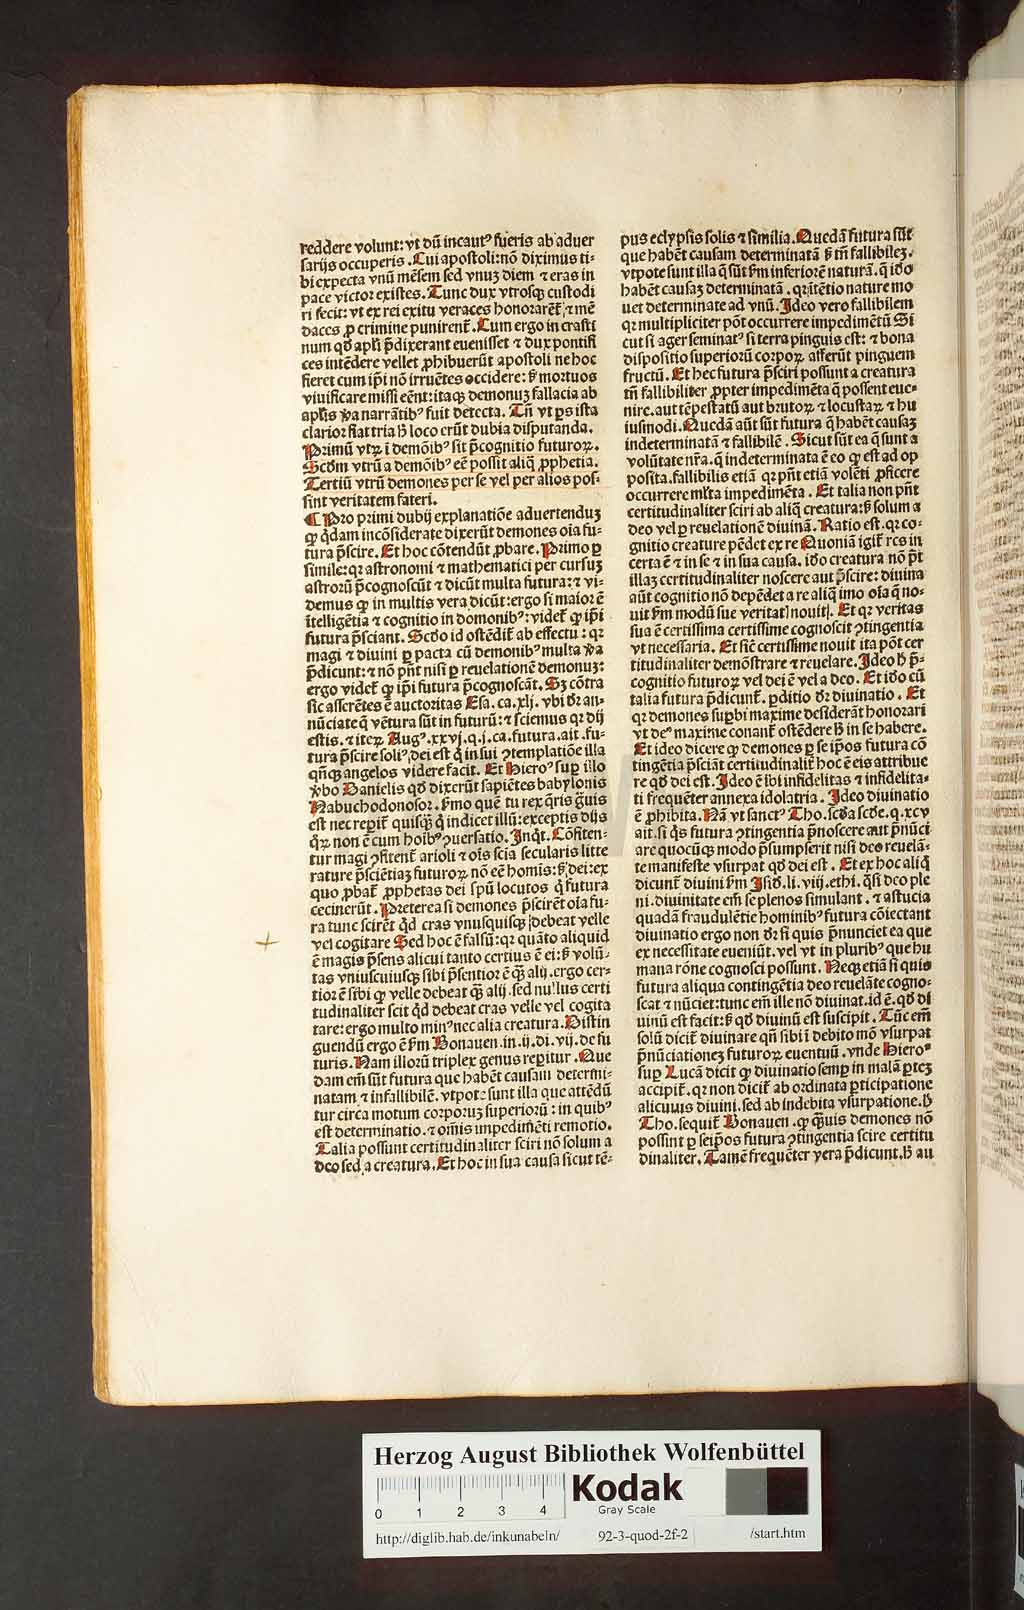 reddere volunt: vt dū incautꝰ fueris ab aduer
sarijs occuperis. Cui apostoli: nō diximus ti-
bi expecta vnū mēsem sed vnuz diem ⁊ eras in
pace victor existes. Tunc dux vtrosqꝫ custodi
ri fecit: vt ex rei exitu veraces honorarēt, ⁊ mē
daces ꝓ crimine punirent̄. Cum ergo in crasti
num qd̄ apli p̄dixerant euenisset ⁊ dux pontifi
ces intēdere vellet ꝓhibuerūt apostoli ne hoc
fieret cum ip̄i nō irruētes occidere: sꝫ mortuos
viuificare missi eēnt: itaqꝫ demonuz fallacia ab
aplis v̄a narrātibꝰ fuit detecta. Tn̄ vt ꝑs ista
clarior fiat tria h̄ loco erūt dubia disputanda.
Primū vtꝝ ī demōibꝰ sit p̄cognitio futuroꝝ.
Scdm vtrū a demōibꝰ eē possit aliq̄ ꝓphetia.
Tertiū vtrū demones per se vel per alios pos-
sint veritatem fateri.
¶ Pro primi dubij explanatiōe aduertenduz
ꝙ q̄dam incōsiderate dixerūt demones oīa fu-
tura p̄scire. Et hoc cōtendūt ꝓbare. Primo ꝑ
simile: qꝛ astronomi ⁊ mathematici per cursuz
astrorū p̄cognoscūt ⁊ dicūt multa futura: ⁊ vi-
demus ꝙ in multis vera dicūt: ergo si maior ē
ītelligētia ⁊ cognitio in domonibꝰ: videt̄ ꝙ ip̄i
futura p̄sciant. Scdo id ostēdit̄ ab effectu: qꝛ
magi ⁊ diuini ꝑ pacta cū demonibꝰ multa v̄a
p̄dicunt: ⁊ nō pn̄t nisi ꝑ reuelationē demonuz:
ergo videt̄ ꝙ ip̄i futura p̄cognoscāt. Sꝫ cōtra
sic asserētes ē auctoritas Esa. ca. xlj. vbi dr̄ an-
nūciate q̄ vētura sūt in futurū: ⁊ sciemus qꝛ dij
estis. ⁊ iteꝝ Augꝰ. xxvj. q. j. ca. futura. ait. fu-
tura p̄scire soliꝰ dei est q̄ in sui ↄtemplatiōe illa
qn̄qꝫ angelos videre facit. Et Hieroꝰ suꝑ illo
v̄bo Danielis qd̄ dixerūt sapiētes babylonis
Nabuchodonosor. sꝫmo quē tu rex q̄ris grauis
est nec reperit̄ quisqꝫ q̄ indicet illū: exceptis dijs
qꝝ non ē cum hoībꝰ ↄuersatio. Inqt̄. Cōfiten-
tur magi ↄfitent̄ arioli ⁊ oīs scīa secularis litte
rature p̄sciētiaꝫ futuroꝝ nō eē homīs: sꝫ dei: ex
quo ꝓbat̄ ꝓphetas dei spū locutos q̄ futura
cecinerūt. Preterea si demones p̄scirēt oīa fu-
ra tunc scirēt qd̄ cras vnusquisqꝫ debeat velle
vel cogitare Sed hoc ē falsū: qꝛ quāto aliquid
ē magis p̄sens alicui tanto certius ē ei: sꝫ volū-
tas vniuscuiusqꝫ sibi p̄sentior ē qꝫ alij. ergo cer-
tior ē sibi ꝙ velle debeat qꝫ alij. sed nullus certi
tudinaliter scit qd̄ debeat cras velle vel cogita
tare: ergo multo minꝰ nec alia creatura. Distin
guendū ergo ē sꝫm Bonauen. in. ij. di. vij. de fu
turis. Nam illorū triplex genus reperitur. Que
dam em̄ sūt futura que habēt causam determi-
natam, ⁊ infallibilē. vtpote sunt illa que attēdū
tur circa motum corporuz superiorū: in quibꝰ
est determinatio. ⁊ om̄is impedimēti remotio.
Talia possunt certitudinaliter sciri nō solum a
deo sed a creatura. Et hoc in sua causa sicut tē-
pus eclypsis solis ⁊ similia. Quedā futura sūt
que habēt causam determinatā sꝫ tn̄ fallibilez.
vtpote sunt illa q̄ sūt sꝫm inferiorē naturā. q̄ ido
habēt causaz determinatā. qꝛ itētio nature mo
uet determinate ad vnū. Ideo vero fallibilem
qꝛ multipliciter pōt occurrere impedimētū Si
cut si ager seminatꝰ si terra pinguis est: ⁊ bona
dispositio superiorū corpoꝝ afferūt pinguem
fructū. Et hec futura p̄sciri possunt a creatura
tn̄ fallibiliter ꝓpter impedimēta q̄ possent eue-
nire. aut tēpestatū aut brutoꝝ ⁊ locustaꝝ ⁊ hu
iusmodi. Quedā aūt sūt futura q̄ habēt causaz
indeterminatā ⁊ fallibilē. Sicut sūt ea q̄ sunt a
volūtate nr̄a. q̄ indeterminata ē eo ꝙ est ad op
posita. fallibilis etiā qꝛ pn̄t etiā volēti ꝓficere
occurrere mlta impedimēta. Et talia non pn̄t
certitudinaliter sciri ab aliq̄ creatura: sꝫ solum a
deo vel ꝑ reuelationē diuinā. Ratio est. qꝛ co-
gnitio creature pēdet ex re Quoniā igit̄ res in
certa ē ⁊ in se ⁊ in sua causa. ido creatura nō pt̄
illaꝫ certitudinaliter noscere aut p̄scire: diuina
aūt cognitio nō depēdet a re aliq̄ imo oīa q̄ no-
uit sꝫm modū sue veritatꝭ nouit. Et qꝛ veritas
sua ē certissima certissime cognoscit ↄtingentia
vt necessaria. Et sic̄ certissime nouit ita pōt cer
titudinaliter demōstrare ⁊ reuelare. Ideo h̄ p̄-
cognitio futuroꝝ vel dei ē vel a deo. Et ido cū
talia futura p̄dicunt̄. ꝑditio dr̄ diuinatio. Et
qꝛ demones suꝑbi maxime desiderāt honorari
vt deꝰ maxime conant̄ ostēdere h̄ in se habere.
Et ideo dicere ꝙ demones ꝑ se ip̄os futura cō
tingētia p̄sciāt certitudinalit̄ hoc ē eis attribue
re qd̄ dei est. Ideo ē ibi infidelitas ⁊ infidelita-
ti frequēter annexa idolatria. Ideo diuinatio
ē ꝓhibita. Nā vt sanctꝰ Tho. scda scde. q. xcv
ait. si qs̄ futura ↄtingentia p̄noscere aut p̄nūci
are quocūqꝫ modo p̄sumpserit nisi deo reuelā-
te manifeste vsurpat qd̄ dei est. Et ex hoc aliq̄
dicunt̄ diuini sꝫm Isid. li. viij. ethi. q̄si deo ple
ni. diuinitate em̄ se plenos simulant. ⁊ astucia
quadā fraudulētie hominibꝰ futura cōiectant
diuinatio ergo non dr̄ si quis p̄nunciet ea que
ex necessitate eueniūt. vel vt in pluribꝰ que hu
mana rōne cognosci possunt. Neqꝫ etiā si quis
futura aliqua contingētia deo reuelāte cogno-
scat ⁊ nūciet: tunc em̄ ille nō diuinat. id ē. qd̄ di
uinū est facit: sꝫ qd̄ diuinū est suscipit. Tūc em̄
solū dicit̄ diuinare qn̄ sibi ī debito mō vsurpat
p̄nūciationez futuroꝝ euentuū. vnde Hieroꝰ
suꝑ Lucā dicit ꝙ diuinatio semꝑ in malā ꝑteꝫ
accipit̄. qꝛ non dicit̄ ab ordinata ꝑticipatione
alicuuis diuini. sed ab indebita vsurpatione. h̄
Tho. sequit̄ Bonauen. ꝙ qꝫuis demones nō
possint ꝑ seip̄os futura ↄtingentia scire certitu
dinaliter. Tamē frequēter vera p̄dicunt. h̄ au
Herzog August Bibliothek Wolfenbüttel
0 1 2 3 4
Kodak
Gray Scale
http://diglib.hab.de/inkunabeln/ 92-3-quod-2f-2 /start.htm